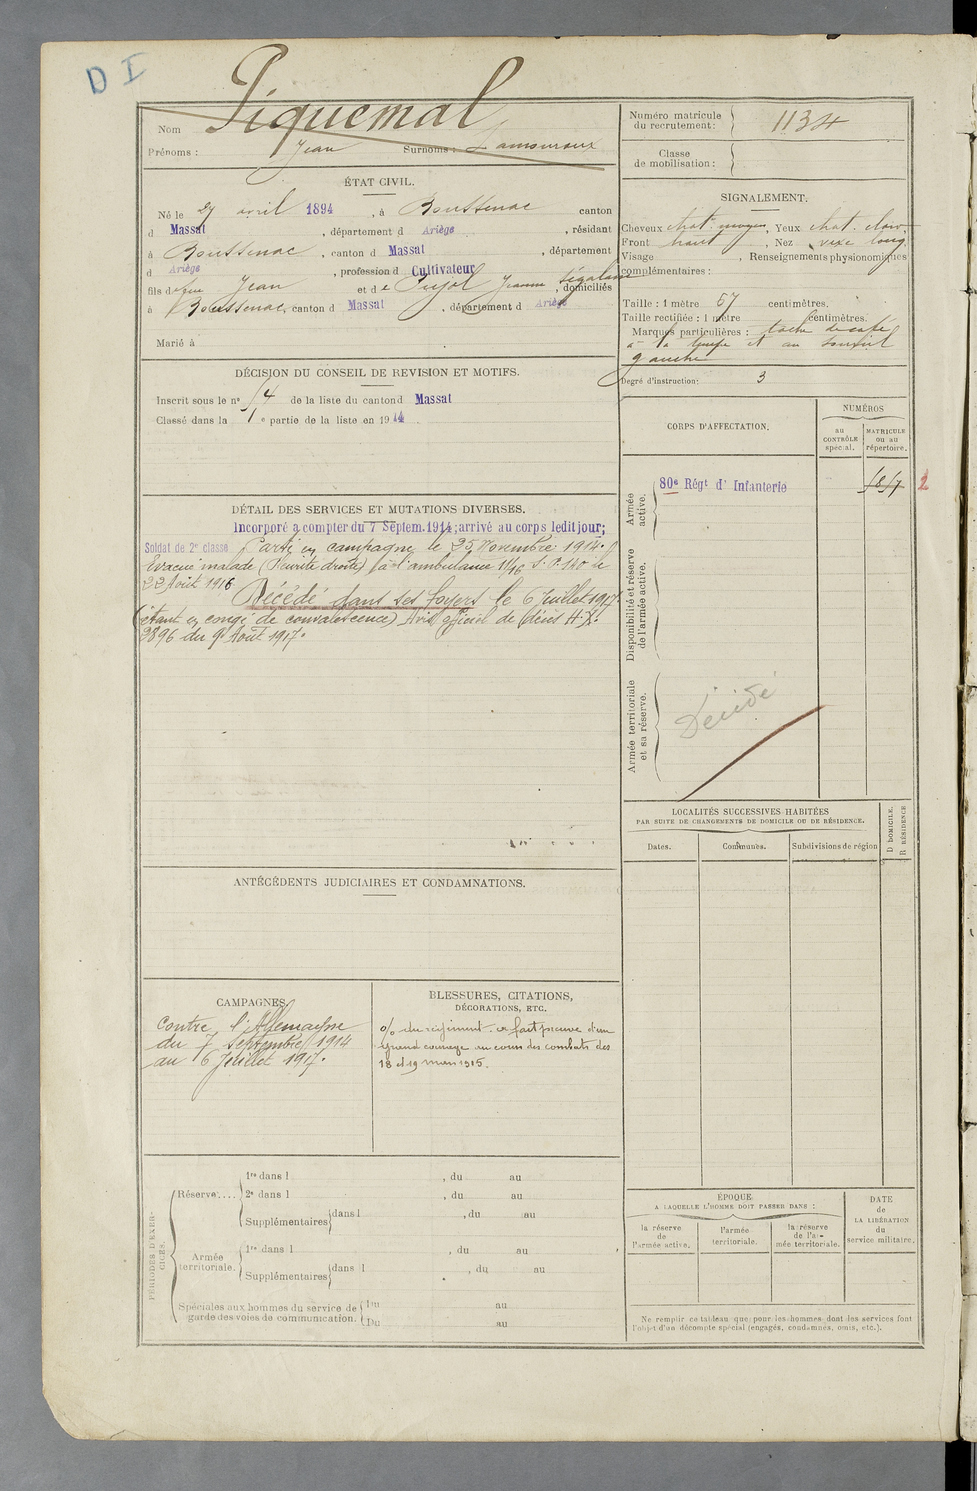 D I
Nom Piquemal
Prénoms : Jean Surnoms : Lamouroux
ÉTAT CIVIL.
Né le 27 avril 1894, à Boussenac canton
d Massat, département d Ariège, résidant
à Boussenac, canton d Massat, département
d Ariège, profession d Cultivateur
fils de feu Jean et de Pujol Jeanne Ségalane, domiciliés
à Boussenac, canton d Massat, département d Ariège
Marié à
DÉCISION DU CONSEIL DE REVISION ET MOTIFS.
Inscrit sous le n° 54 de la liste du canton d Massat
Classé dans la 1e partie de la liste en 1914
DÉTAIL DES SERVICES ET MUTATIONS DIVERSES.
Incorporé à compter du 7 Septem. 1914; arrivé au corps ledit jour;
Soldat de 2e classe Parti en campagne le 25 Novembre 1914.
Evacué malade (Pleurite droite) à l'ambulance 11/16 S.P. 140 le
22 Août 1916
Décédé dans ses foyers le 6 Juillet 1917
(étant en congé de convalescence) Avis officiel de décès H.X.
2896 du 9 Août 1917.
ANTÉCÉDENTS JUDICIAIRES ET CONDAMNATIONS.
CAMPAGNES.
Contre l'Allemagne
du 7 Septembre 1914
au 6 Juillet 1917.
BLESSURES, CITATIONS,
DÉCORATIONS, ETC.
% du régiment. a fait preuve d'un
grand courage au cours des combats des
18 et 19 mars 1915.
PÉRIODES D'EXER-
CICES.
Réserve....
1re dans l , du au
2e dans l , du au
Supplémentaires dans l , du au
Armée
territoriale.
1re dans l , du au
Supplémentaires dans l , du au
Spéciales aux hommes du service de
garde des voies de communication.
Du au
Du au
Numéro matricule
du recrutement : 1134
Classe
de mobilisation :
SIGNALEMENT.
Cheveux chat. moyen, Yeux chat. clair.
Front haut, Nez vexe long
Visage , Renseignements physionomiques
complémentaires :
Taille : 1 mètre 67 centimètres.
Taille rectifiée : 1 mètre centimètres.
Marques particulières : tache de café
à la tempe et au sourcil
gauche
Degré d'instruction : 3
CORPS D'AFFECTATION.
NUMÉROS
au
CONTRÔLE
spécial.
MATRICULE
ou au
répertoire.
Armée
active.
80e Régt d' Infanterie
2
Disponibilité et réserve
de l'armée active.
Armée territoriale
et sa réserve.
Décédé
LOCALITÉS SUCCESSIVES HABITÉES
PAR SUITE DE CHANGEMENTS DE DOMICILE OU DE RÉSIDENCE.
D DOMICILE.
R RÉSIDENCE
Dates.
Communes.
Subdivisions de région
ÉPOQUE
A LAQUELLE L'HOMME DOIT PASSER DANS :
la réserve
de
l'armée active.
l'armée
territoriale.
la réserve
de l'ar-
mée territoriale.
DATE
de
LA LIBÉRATION
du
service militaire.
Ne remplir ce tableau que pour les hommes dont les services font
l'objet d'un décompte spécial (engagés, condamnés, omis, etc.).